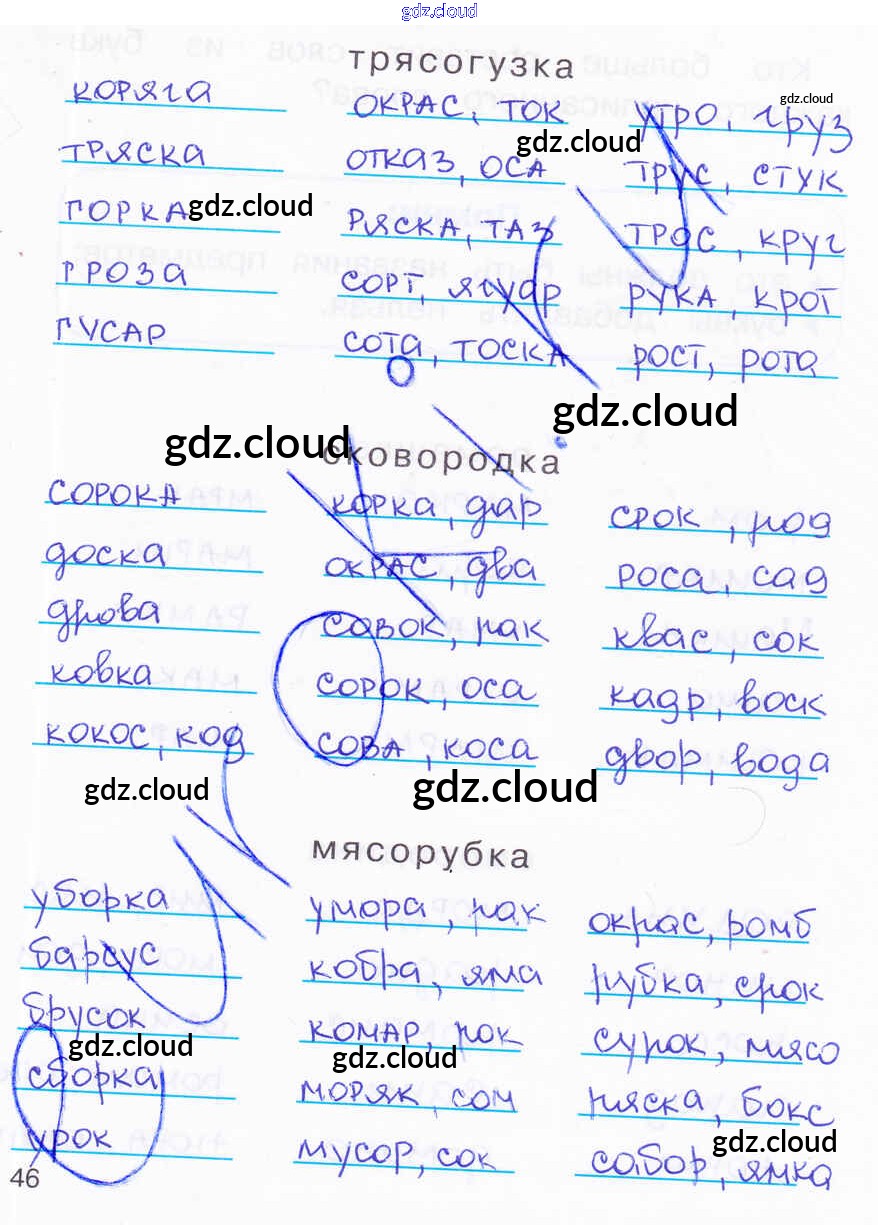 gdz.cloud
трясогузка
КОРЯГА ОКРАС, ТОК УТРО, груз
gdz.cloud
gdz.cloud
ТРЯСКА ОТКАЗ, ОСА ТРУС, СТУК
ГОРКА РЯСКА, ТАЗ ТРОС, КРУГ
gdz.cloud
ГРОЗА СОРТ, ЯГУАР РУКА, КРОТ
ГУСАР СОТА, ТОСКА РОСТ, РОТА
gdz.cloud
gdz.cloud
сковородка
СОРОКА КОРКА, дар СРОК, род
доска ОКРАС, два роса, сад
дрова СОВОК, рак квас, сок
ковка СОРОК, оса кадр, воск
кокос, код СОВА, коса двор, вода
gdz.cloud
gdz.cloud
мясорубка
уборка умора, рак окрас, ромб
барсус кобра, яма рубка, срок
брусок комар, рок сурок, мясо
gdz.cloud
gdz.cloud
сборка моряк, сом ряска, бокс
урок мусор, сок собор, ямка
gdz.cloud
46